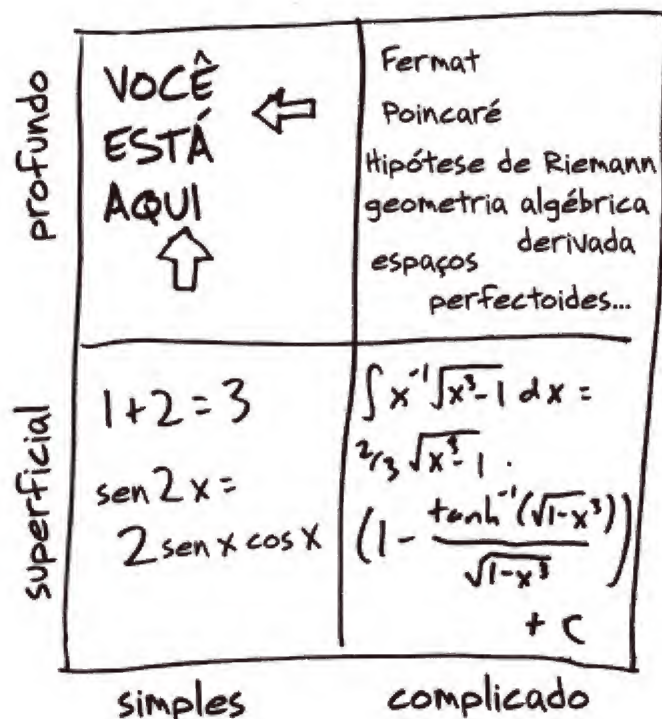 profundo
VOCÊ
ESTÁ
AQUI
Fermat
Poincaré
Hipótese de Riemann
geometria algébrica
derivada
espaços
perfectoides...
superficial
1+2=3
sen 2x=
2 sen x cos x
∫ x⁻¹√(x³-1) dx =
2/3 √(x³-1) ·
(1 - tanh⁻¹(√(1-x³))/√(1-x³))
+ C
simples
complicado